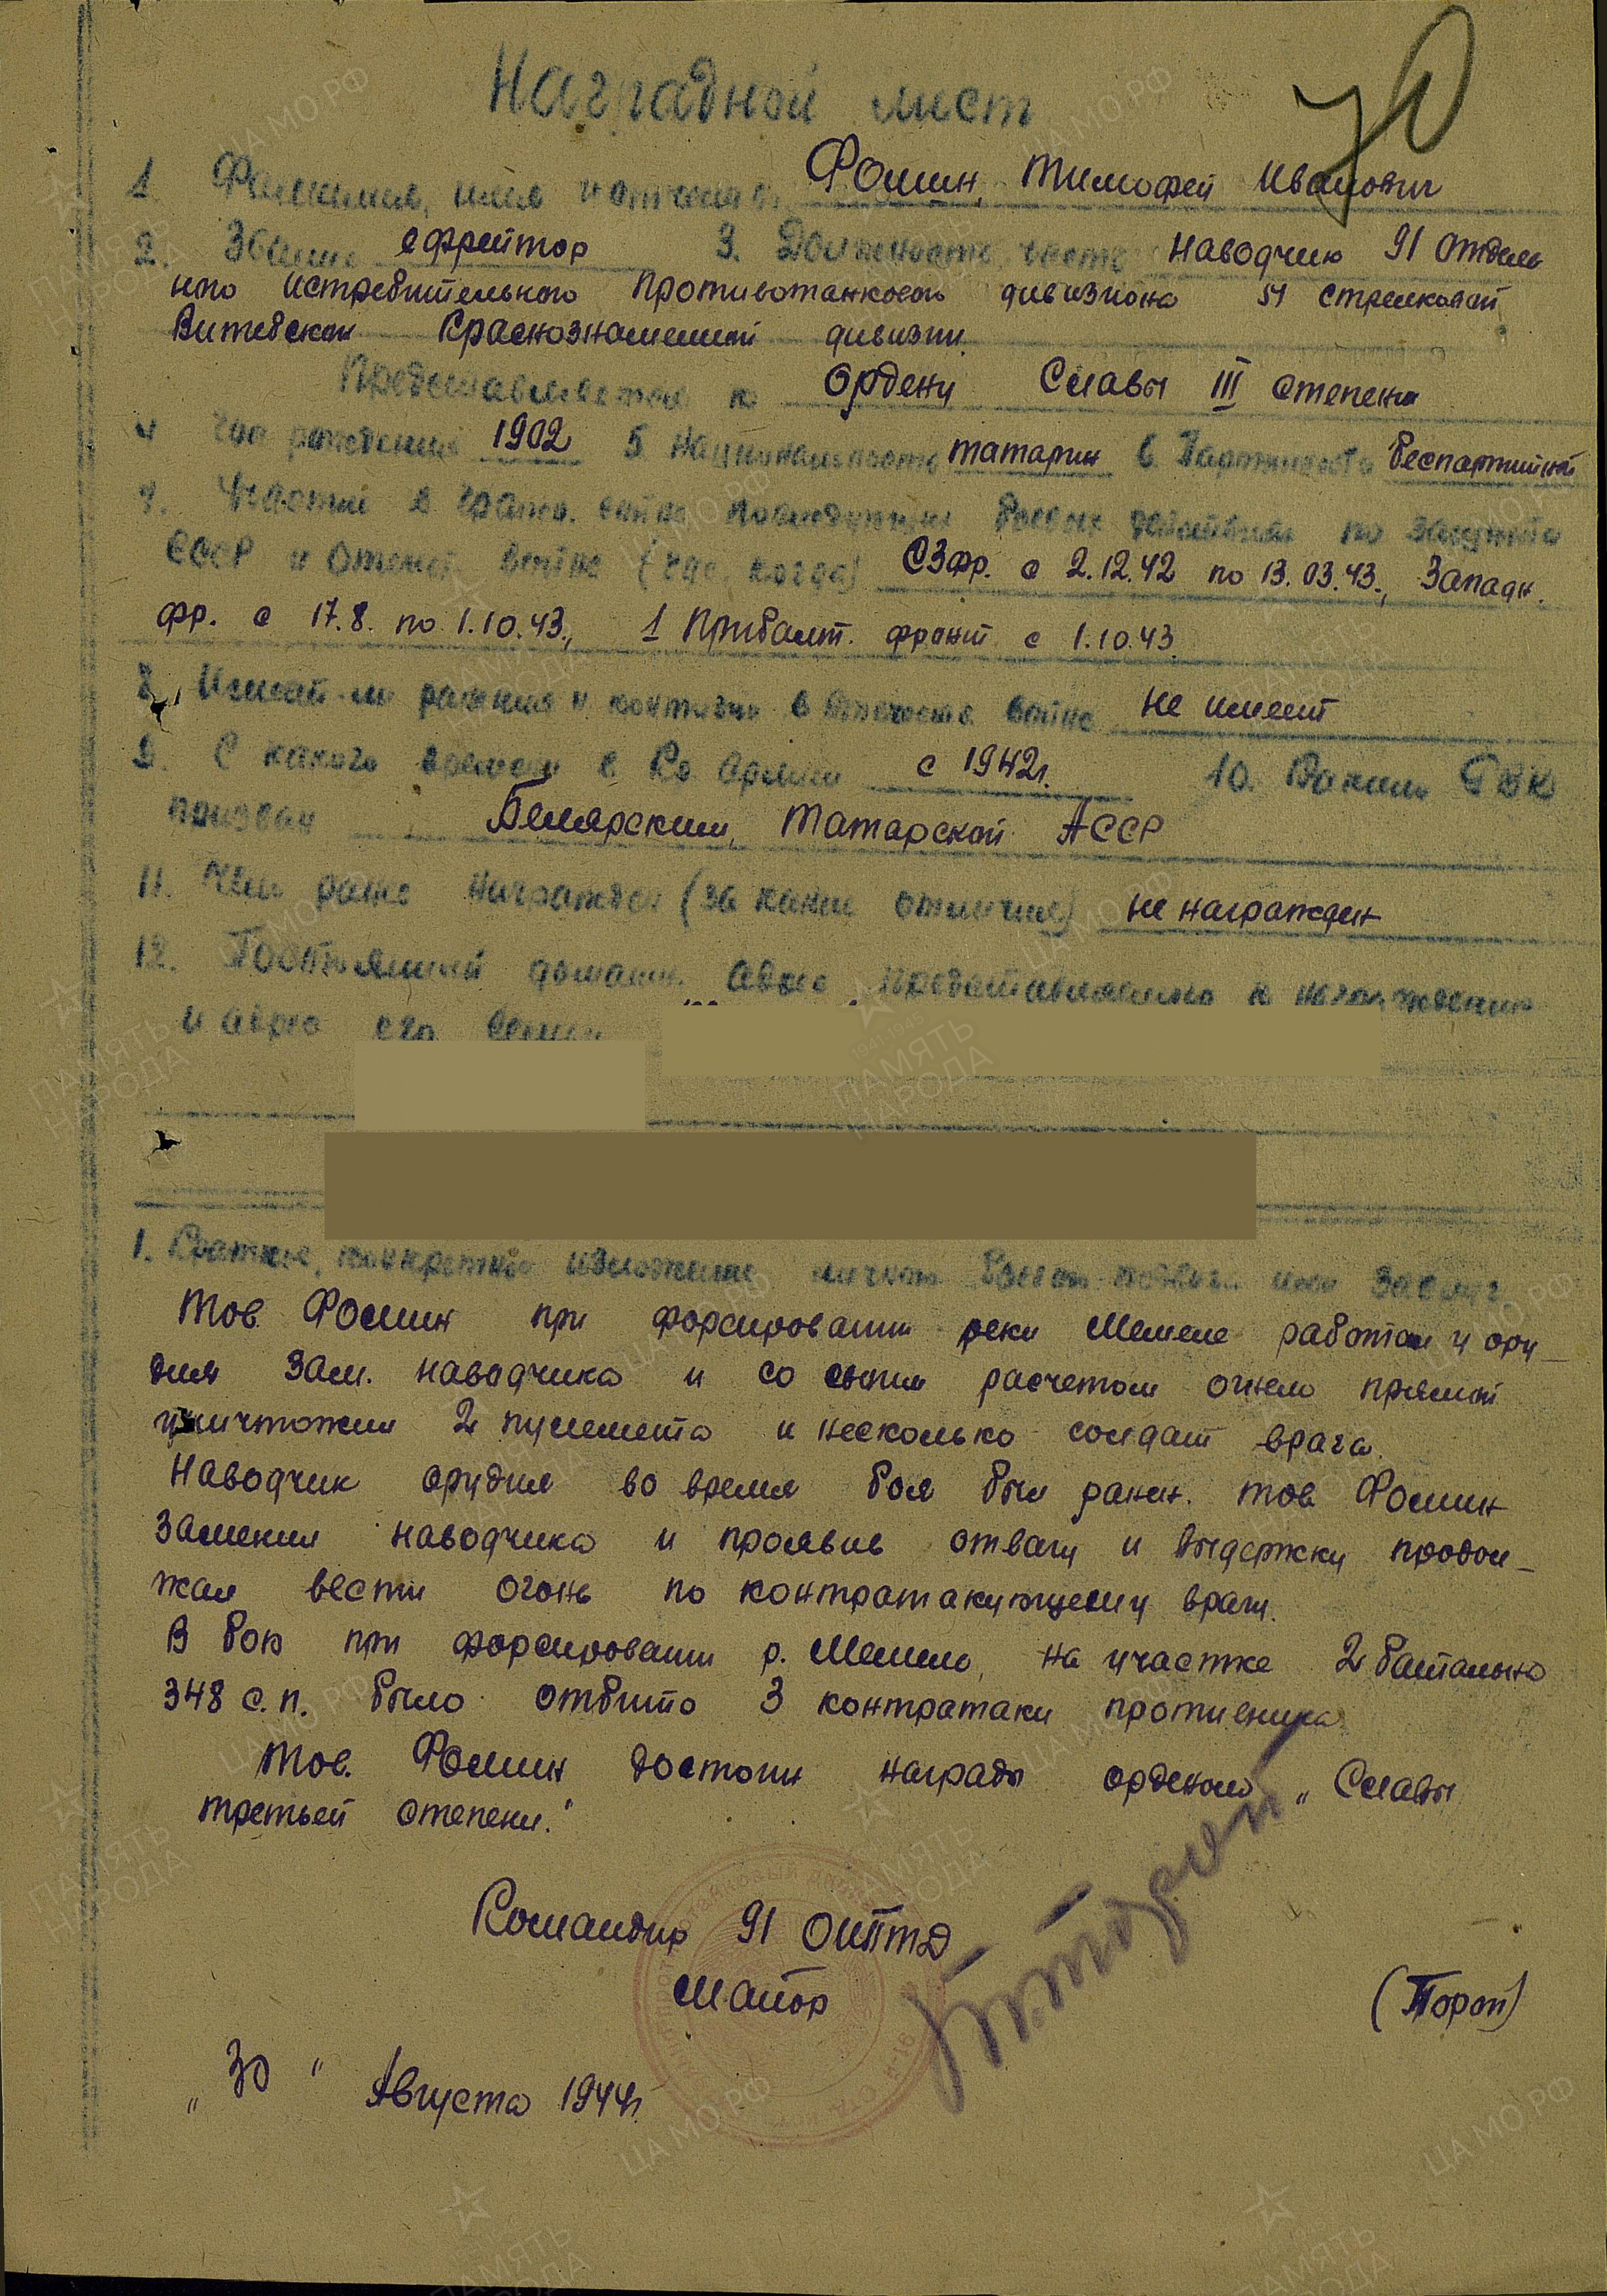 70
Наградной лист
1. Фамилия, имя и отчество Фомин, Тимофей Иванович
2. Звание ефрейтор 3. Должность, часть Наводчик 91 отдель
ного истребительного противотанкового дивизиона 51 стрелковой
Витебской Краснознаменной дивизии
Представляется к Ордену Славы III степени
4 Год рождения 1902 5 Национальность татарин 6. Партийность беспартийный
7. Участие в гражд. войне последующих боевых действиях по защите
СССР и Отечеств. войне (где, когда) СЗфр. с 2.12.42 по 13.03.43., Западн.
фр. с 17.8. по 1.10.43., 1 Прибалт. фронт с 1.10.43.
8. Имеет ли ранения и контузии в Отечеств. войне не имеет
9. С какого времени в Кр. Армии с 1942г. 10. Каким РВК
призван Билярским, Татарской АССР
11. Чем ранее награжден (за какие отличия) не награжден
12. Постоянный домашн. адрес представляемого к награждению
и адрес его семьи
1. Краткое, конкретное изложение личного боевого подвига или заслуг
Тов. Фомин при форсировании реки Мемеле работал у ору_
дия зам. наводчика и со своим расчетом огнем прямой
уничтожил 2 пулемета и несколько солдат врага.
Наводчик орудия во время боя был ранен. тов Фомин
заменил наводчика и проявив отвагу и выдержку продол_
жал вести огонь по контратакующему врагу.
В бою при форсировании р. Мемеле, на участке 2 батальона
348 с.п. было отбито 3 контратаки противника
Тов. Фомин достоин награды орденом „Славы
третьей степени."
Командир 91 ОИПТД
Майор (Торот)
„30" Августа 1944г.
ЦА МО РФ
ПАМЯТЬ
НАРОДА